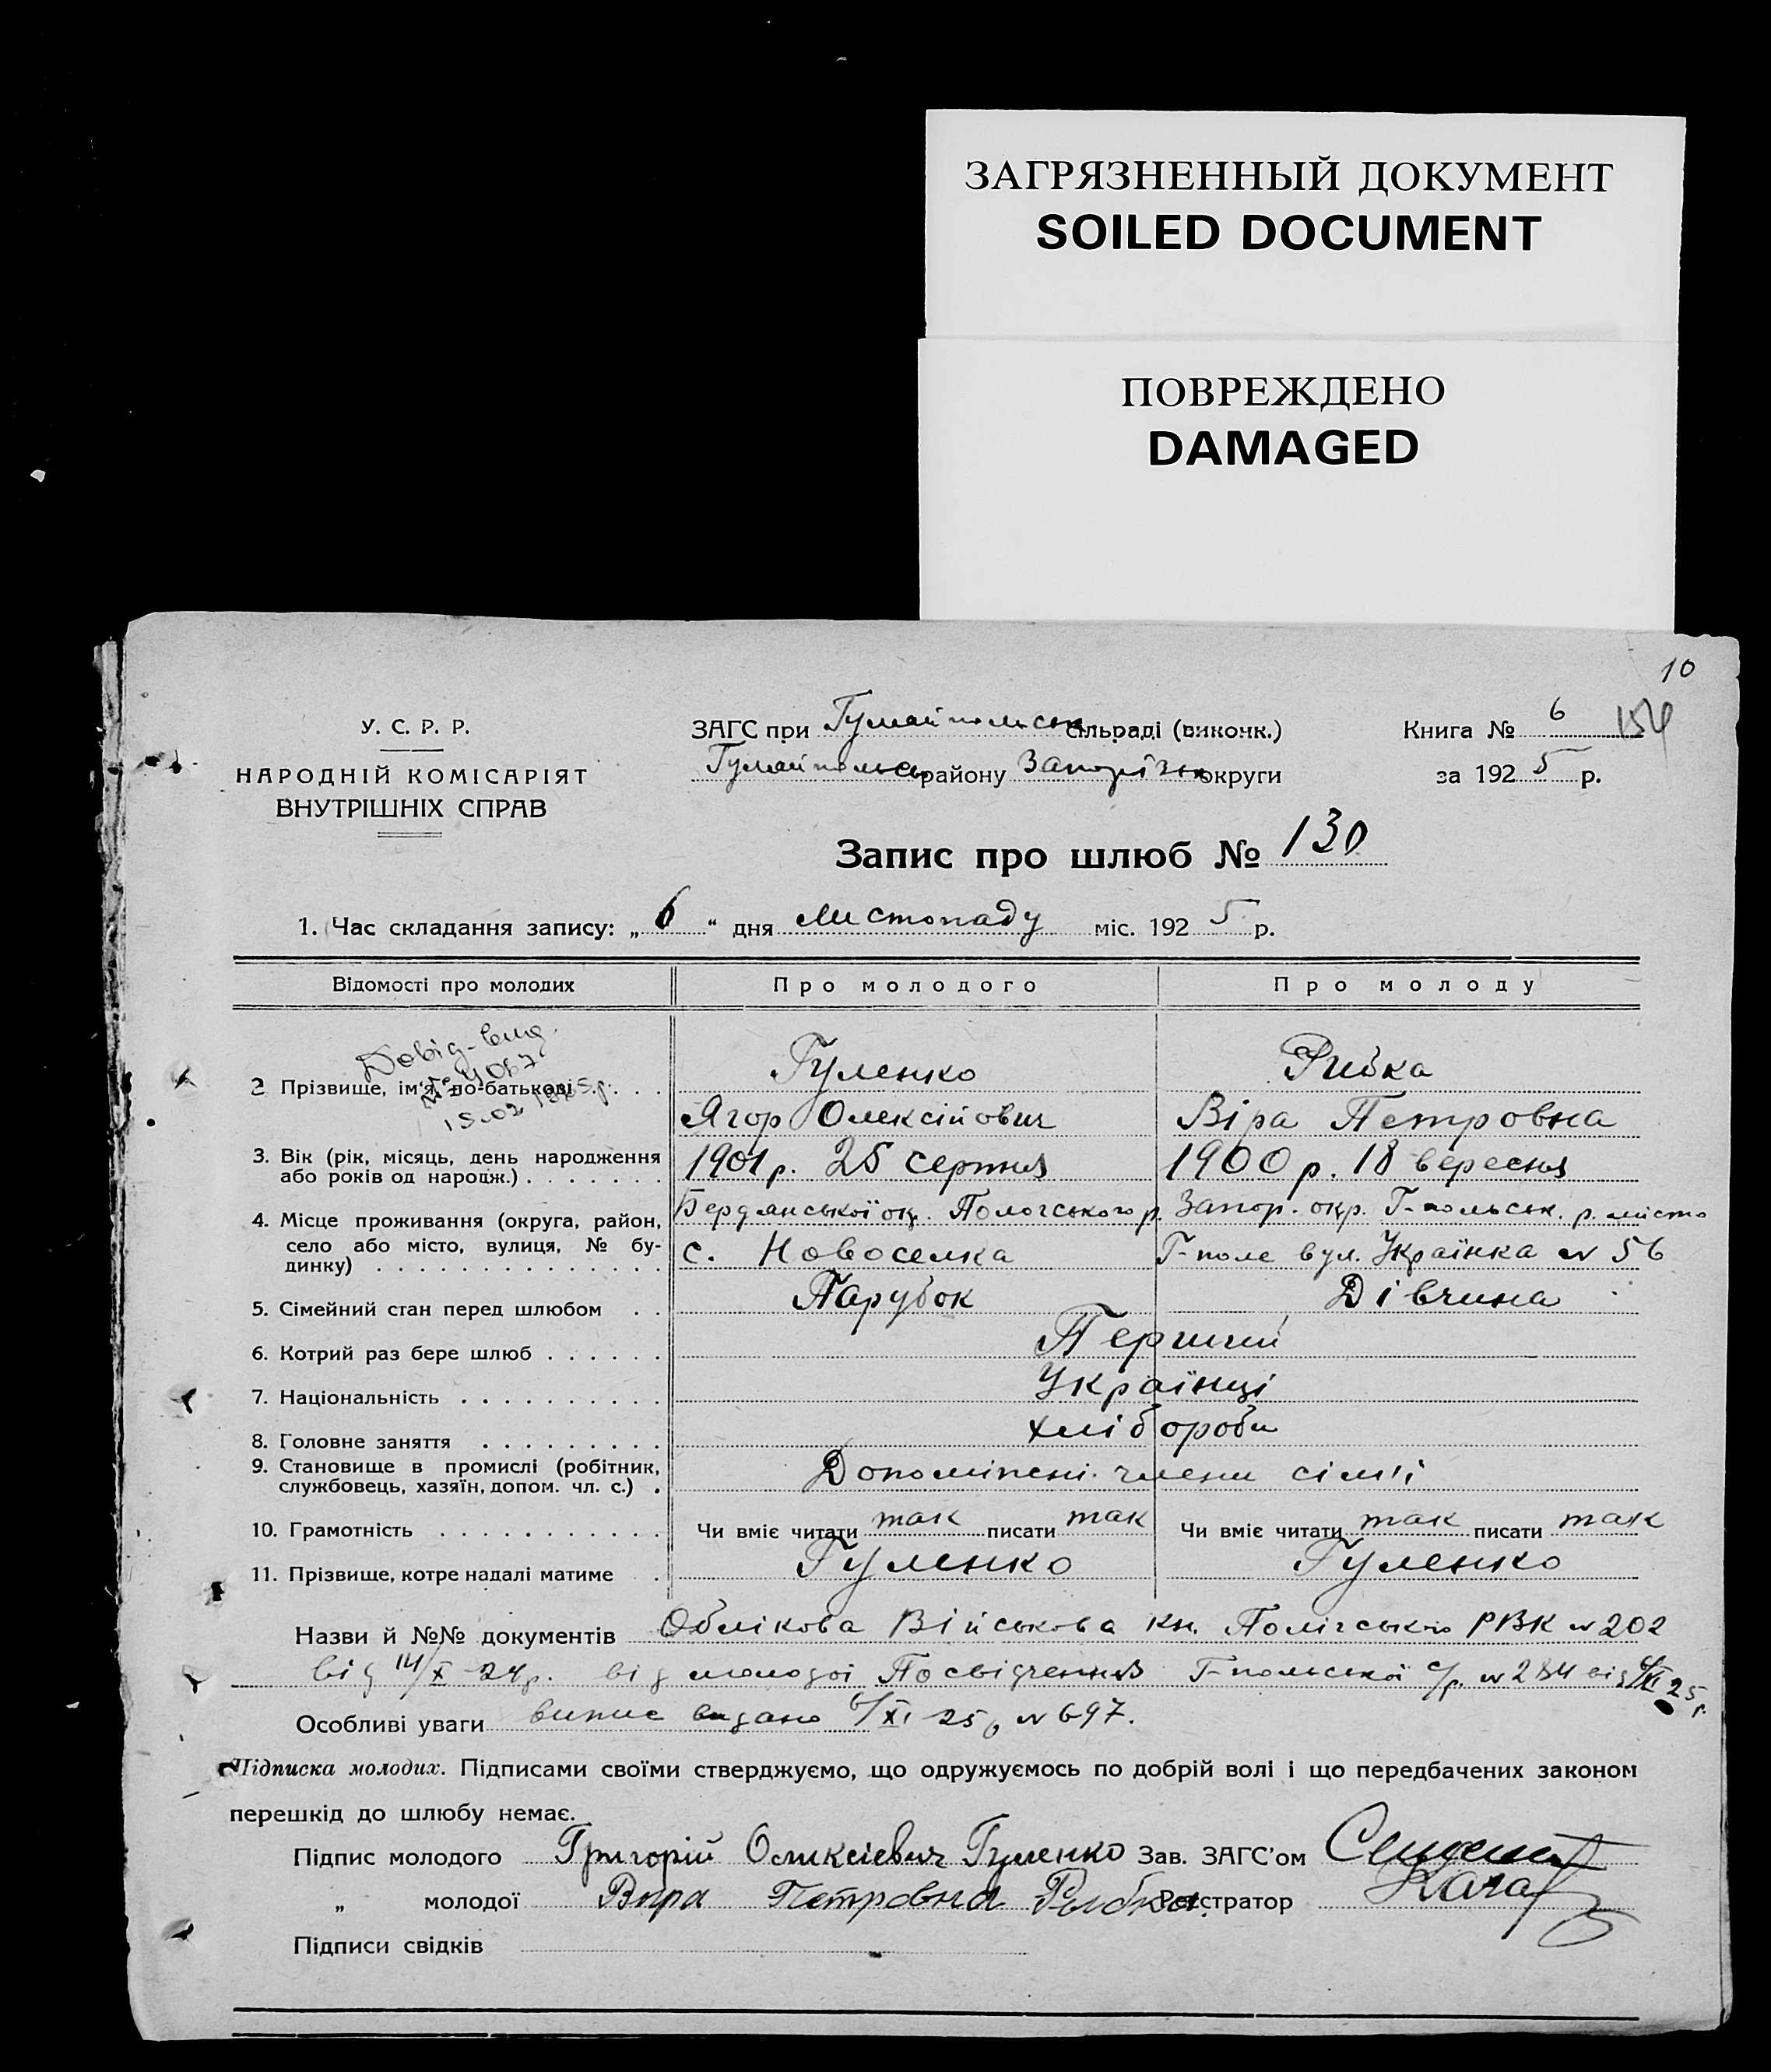 ЗАГРЯЗНЕННЫЙ ДОКУМЕНТ
SOILED DOCUMENT
ПОВРЕЖДЕНО
DAMAGED
10
У. С. Р. Р.
НАРОДНІЙ КОМІСАРІЯТ
ВНУТРІШНІХ СПРАВ
ЗАГС при Гуляйпольськ сільраді (виконк.)
Гуляйпольськ району Запоріжк округи
Книга № 6 154
за 1925 р.
Запис про шлюб № 130
1. Час складання запису: „6“ дня Листопаду міс. 1925 р.
Відомості про молодих Про молодого Про молоду
Довід-вид.
15.02
2 Прізвище, ім'я, по-батькові Гуленко Рибка
Ягор Олексійович Віра Петровна
3. Вік (рік, місяць, день народження 1901 р. 25 серпня 1900 р. 18 вересня
або років од народж.)
4. Місце проживання (округа, район, Бердянської ок. Пологського р. Запор. окр. Г-польськ. р. місто
село або місто, вулиця, № бу- с. Новоселка Г-поле вул. Українка № 56
динку)
5. Сімейний стан перед шлюбом Парубок Дівчина
6. Котрий раз бере шлюб Перший
7. Національність Українці
8. Головне заняття хлібороби
9. Становище в промислі (робітник, Допоміжні члени сім'ї
службовець, хазяїн, допом. чл. с.)
10. Грамотність Чи вміє читати так писати так Чи вміє читати так писати так
11. Прізвище, котре надалі матиме Гуленко Гуленко
Назви й №№ документів Облікова Військова кн. Полігсько РВК № 202
від 14/X 24р. від молодої Посвідчення Г-польської с/р. № 284 від 6/XI 25 р.
Особливі уваги випис видано 6/XI 25 № 697.
Підписка молодих. Підписами своїми стверджуємо, що одружуємось по добрій волі і що передбачених законом
перешкід до шлюбу немає.
Підпис молодого Григорій Олексієвич Гуленко Зав. ЗАГС'ом
„ молодої Вира Петровна Рыбка. Реєстратор
Підписи свідків